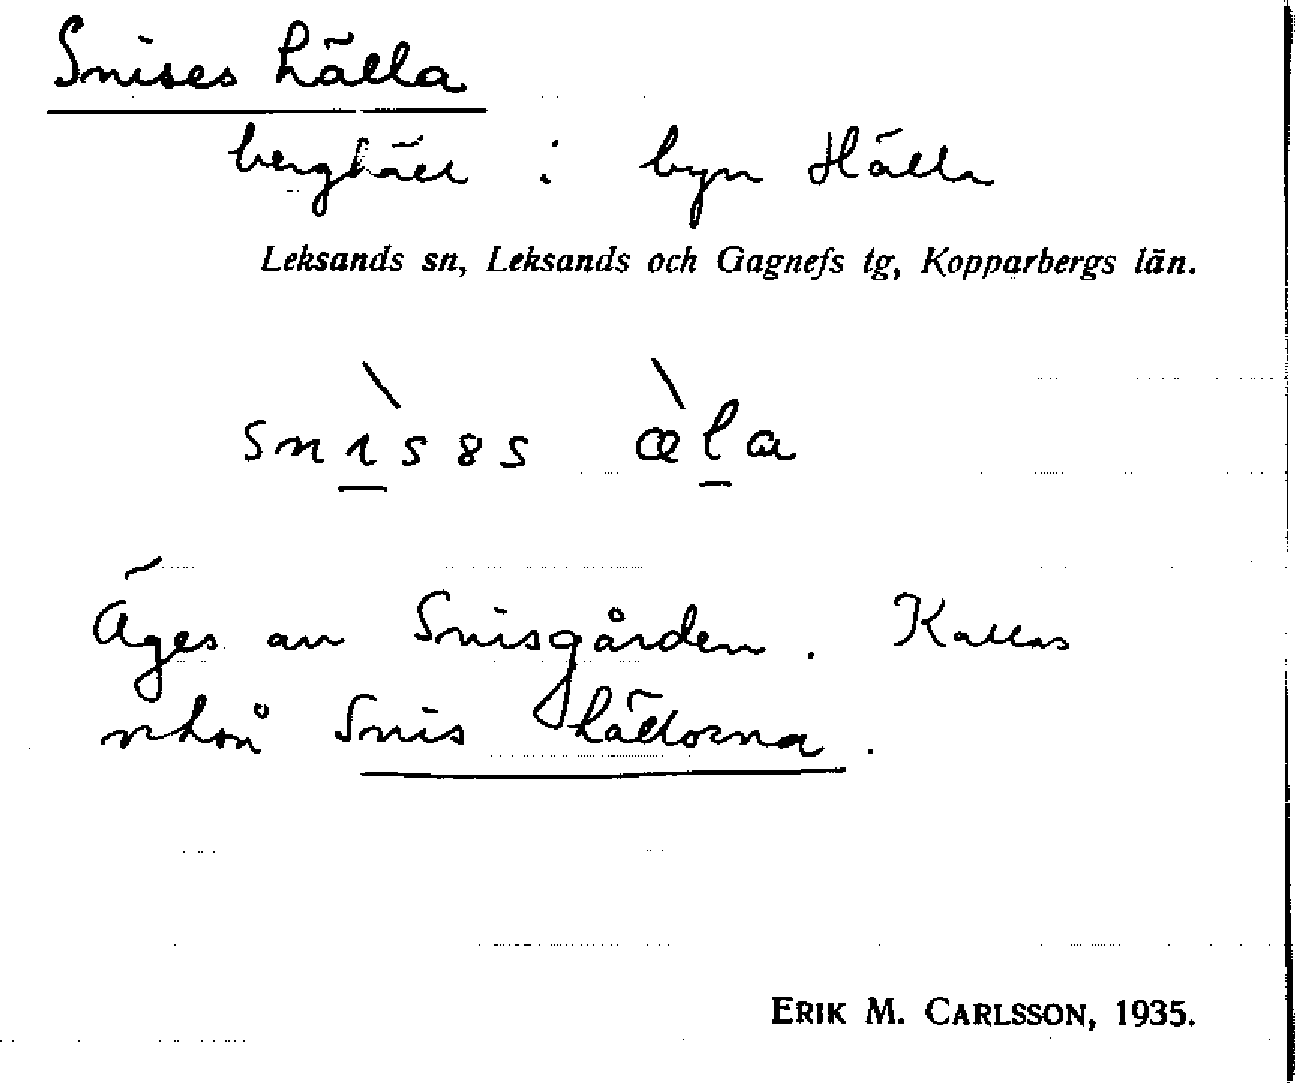 Snises hälla
berghäll i byn Hälla
Leksands sn, Leksands och Gagnefs tg, Kopparbergs län.
snɪ̀sɘs æ̀la
Äges av Snisgården. Kallas
också Snis hällorna.
ERIK M. CARLSSON, 1935.